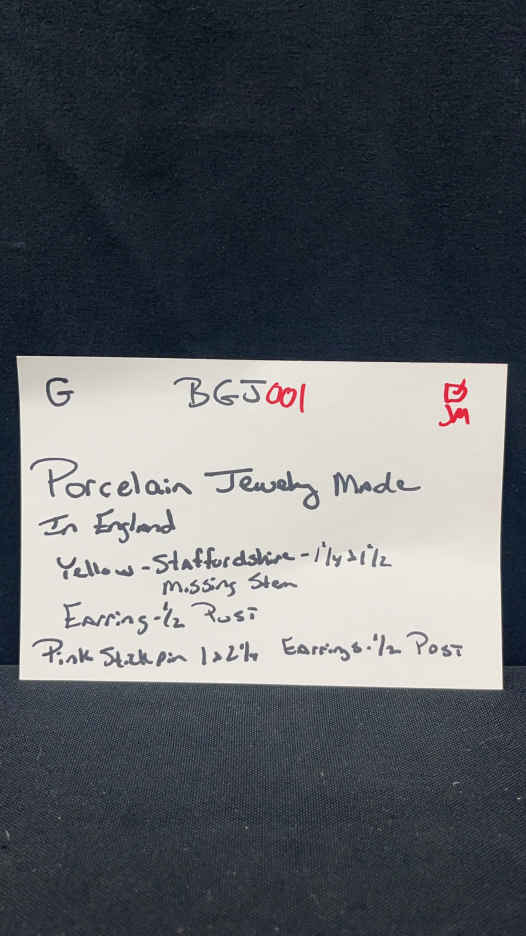 G BGJ001
JM
Porcelain Jewelry Made
In England
Yellow - Staffordshire - 1 1/4 x 1 1/2
Missing Stem
Earring - 1/2 Post
Pink Stick pin 1 x 2 1/4 Earrings - 1/2 Post